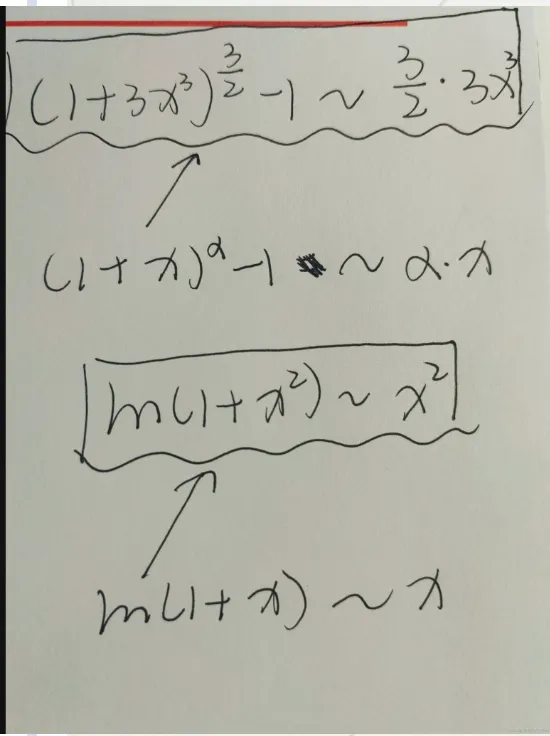 (1+3x³)^{3/2} -1 ~ 3/2 · 3x³
(1+x)^α -1 ~ α·x
ln(1+x²) ~ x²
ln(1+x) ~ x